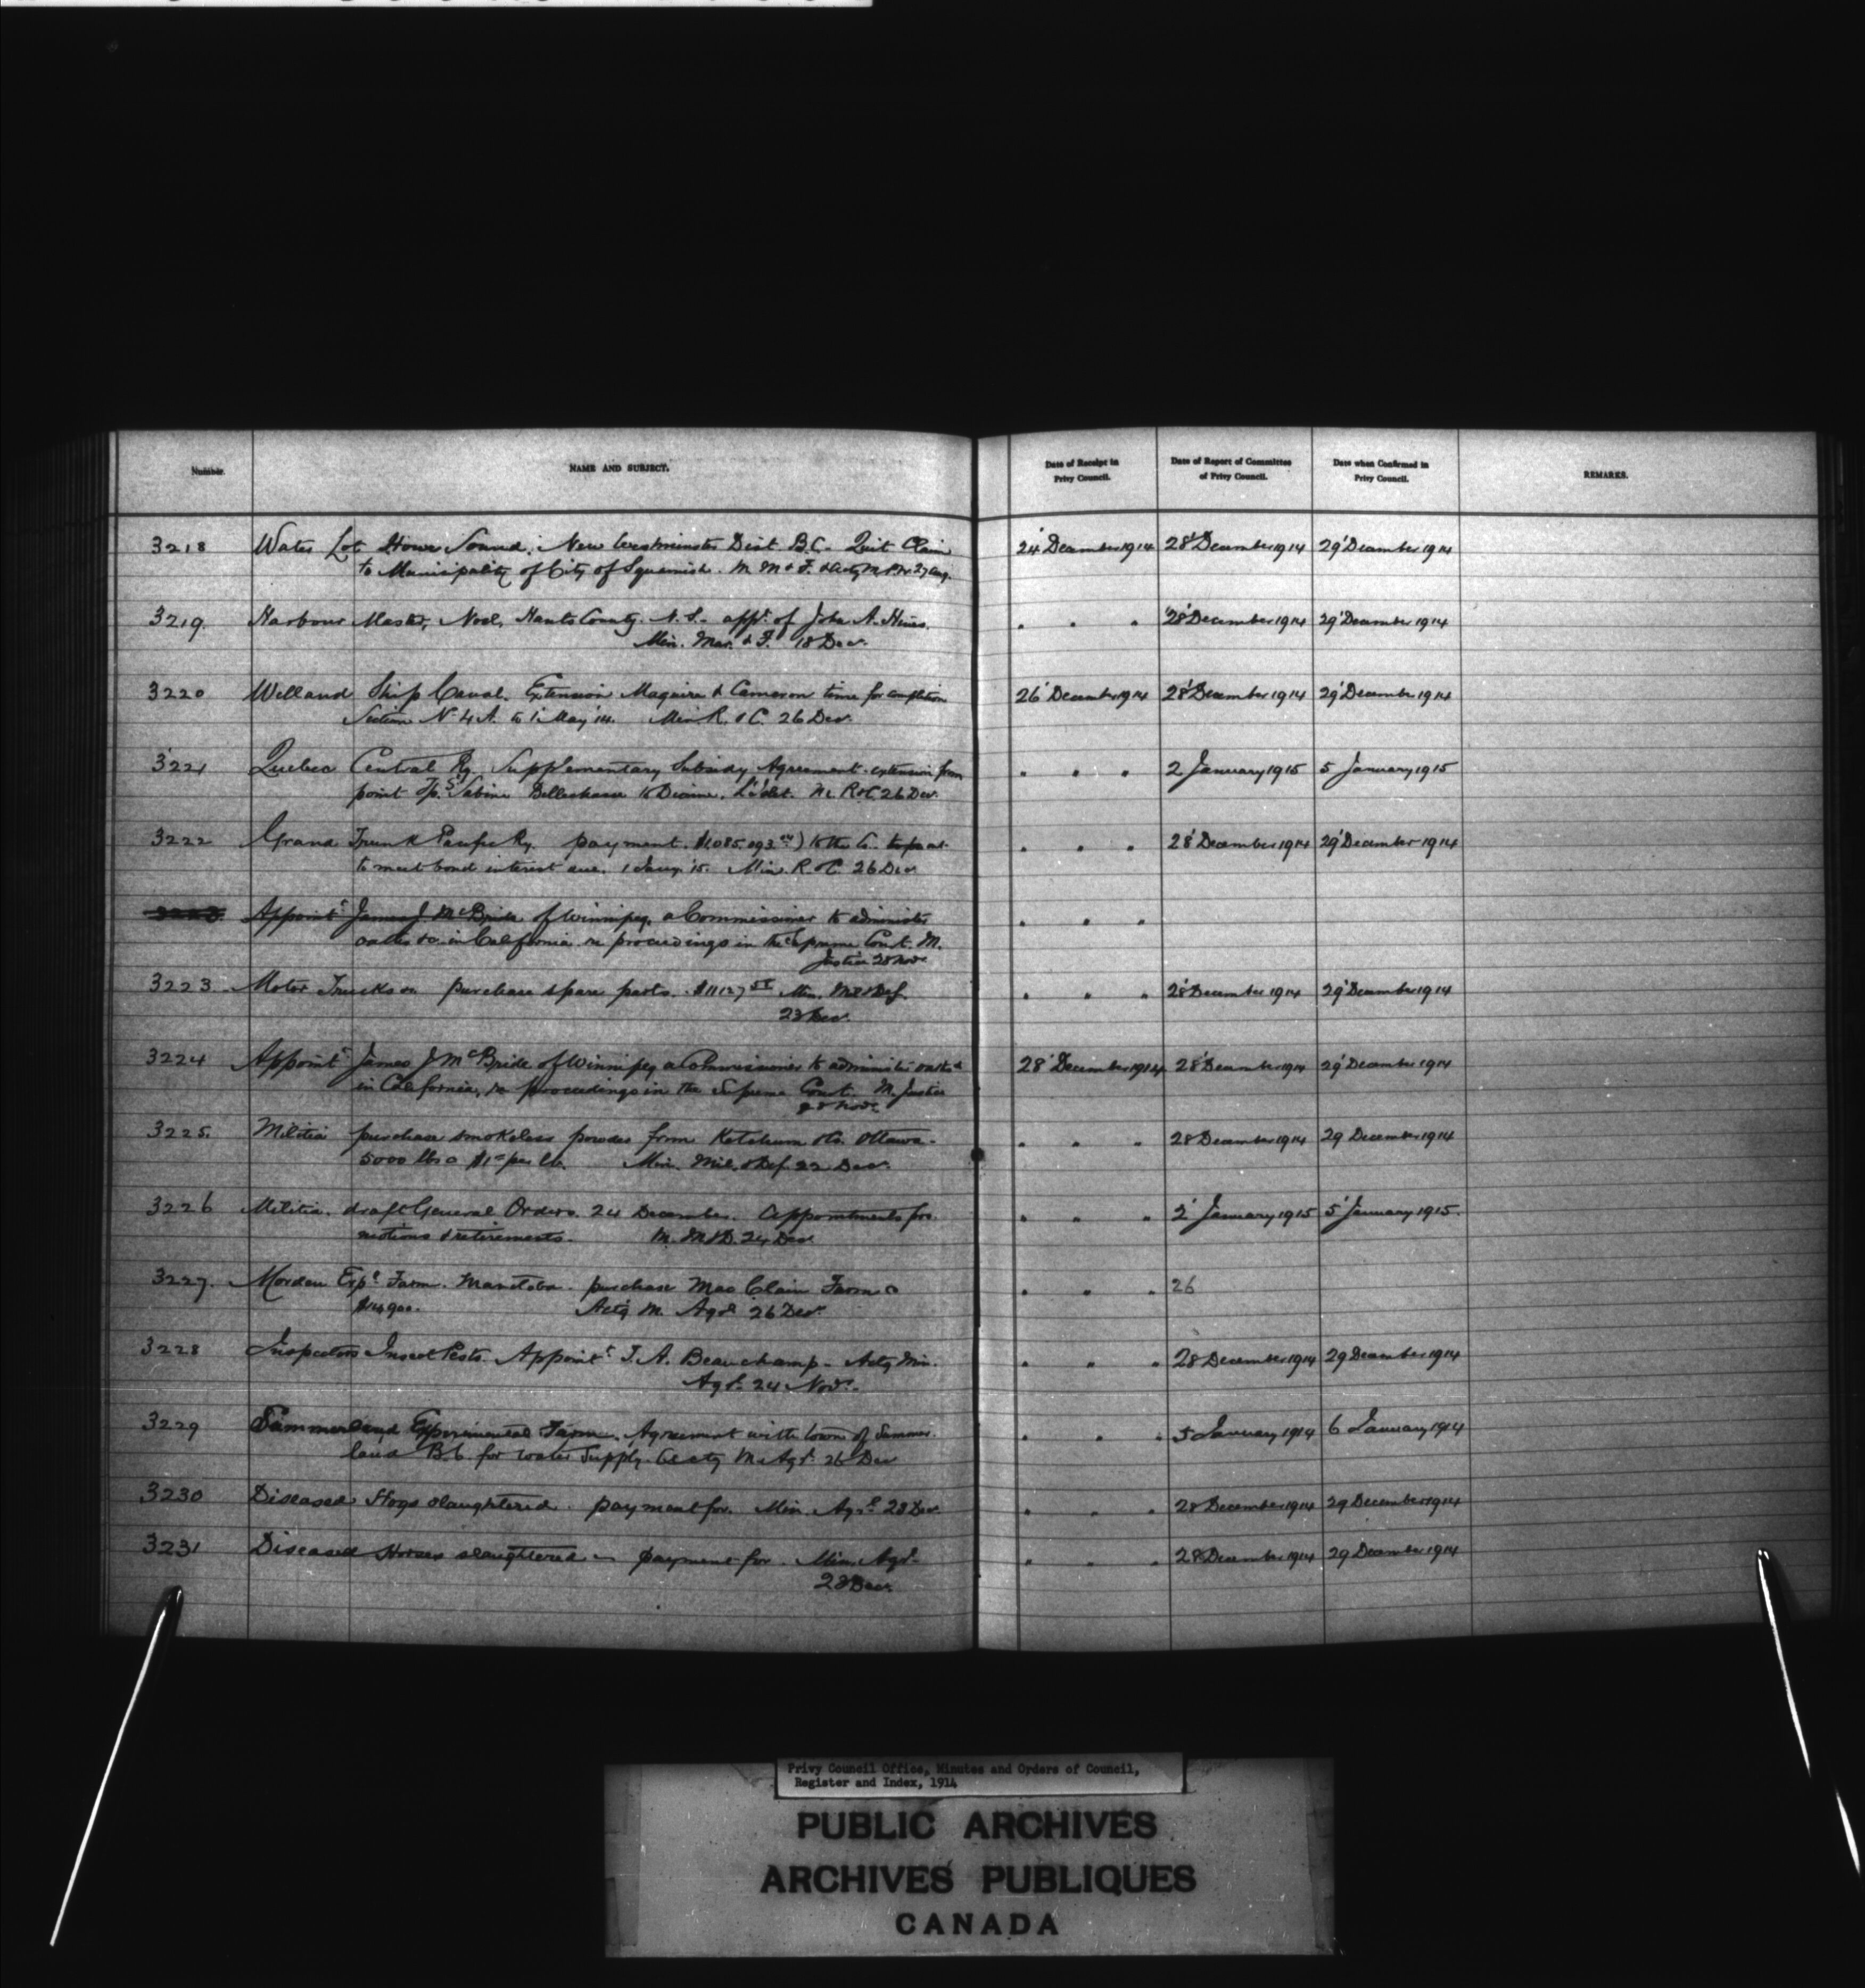 Number.
NAME AND SUBJECT.
Date of Receipt in
Privy Council.
Date of Report of Committee
of Privy Council.
Date when Confirmed in
Privy Council.
REMARKS.
3218 Water Lot Howe Sound, New Westminster Dist. B.C. - Quit Claim 24' December 1914 28' December 1914 29' December 1914
to Municipality of City of Squamish. M. M & F. & Actg M.P.W. 27 Aug.
3219. Harbour Master, Noel, Hants County. N.S. - appt. of John A. Hines. " " " 28' December 1914 29' December 1914
Min. Mar. & F. 18 Decr.
3220 Welland Ship Canal. Extension Maguire & Cameron time for completion 26' December 1914 28' December 1914 29' December 1914
Section No 4 A. to 1' May '14. Min R. & C. 26 Decr.
3221 Quebec Central Ry. Supplementary Subsidy Agreement - extension from " " " 2 January 1915 5 January 1915
point Tp. St Sabine Bellechasse to M. R & C. 26 Decr.
3222 Grand Trunk Pacific Ry. payment. $1,085,093 to the Co. " " " 28' December 1914 29' December 1914
to meet bond interest due. 1 Jany. '15. Min. R. & C. 26 Decr
3223. Appoint't James J. McBride of Winnipeg, a Commissioner to administer " " "
oaths &c. in California re proceedings in the Supreme Court. M.
Justice 28 Novr.
3223. Motor Trucks purchase spare parts. $11127 Min. Mil & Def. " " " 28' December 1914 29' December 1914
23 Decr.
3224 Appoint't James J McBride of Winnipeg a Commissioner to administer oaths 28' December 1914 28' December 1914 29' December 1914
in California, re proceedings in the Supreme Court. M. Justice
28 Novr.
3225. Militia purchase smokeless powder from Ketchum & Co. Ottawa - " " " 28 December 1914 29 December 1914
5000 lbs @ $1 per lb. Min. Mil. & Def. 22 Decr.
3226 Militia. draft General Orders. 24 December. Appointments pro- " " " 2' January 1915 5' January 1915.
motions & retirements. M. M & D. 24 Decr
3227. Morden Expl Farm. Manitoba. purchase Mac Clain Farm @ " " " 26
$14900. Actg M. Agrl 26 Decr.
3228 Inspectors Insect Pests. Appoint't J. A. Beauchamp - Actg Min. " " " 28 December 1914 29 December 1914
Agrl. 24 Novr.
3229 Summerland Experimental Farm. Agreement with town of Summer- " " " 5 January 1914 6 January 1914
land B.C. for water Supply. Actg M. Agrl 26 Decr
3230 Diseased Hogs slaughtered. payment for. Min. Agrl 28 Decr. " " " 28 December 1914 29 December 1914
3231 Diseased Horses slaughtered - payment for. Min. Agrl - " " " 28 December 1914 29 December 1914
28 Decr.
Privy Council Office, Minutes and Orders of Council,
Register and Index, 1914
PUBLIC ARCHIVES
ARCHIVES PUBLIQUES
CANADA